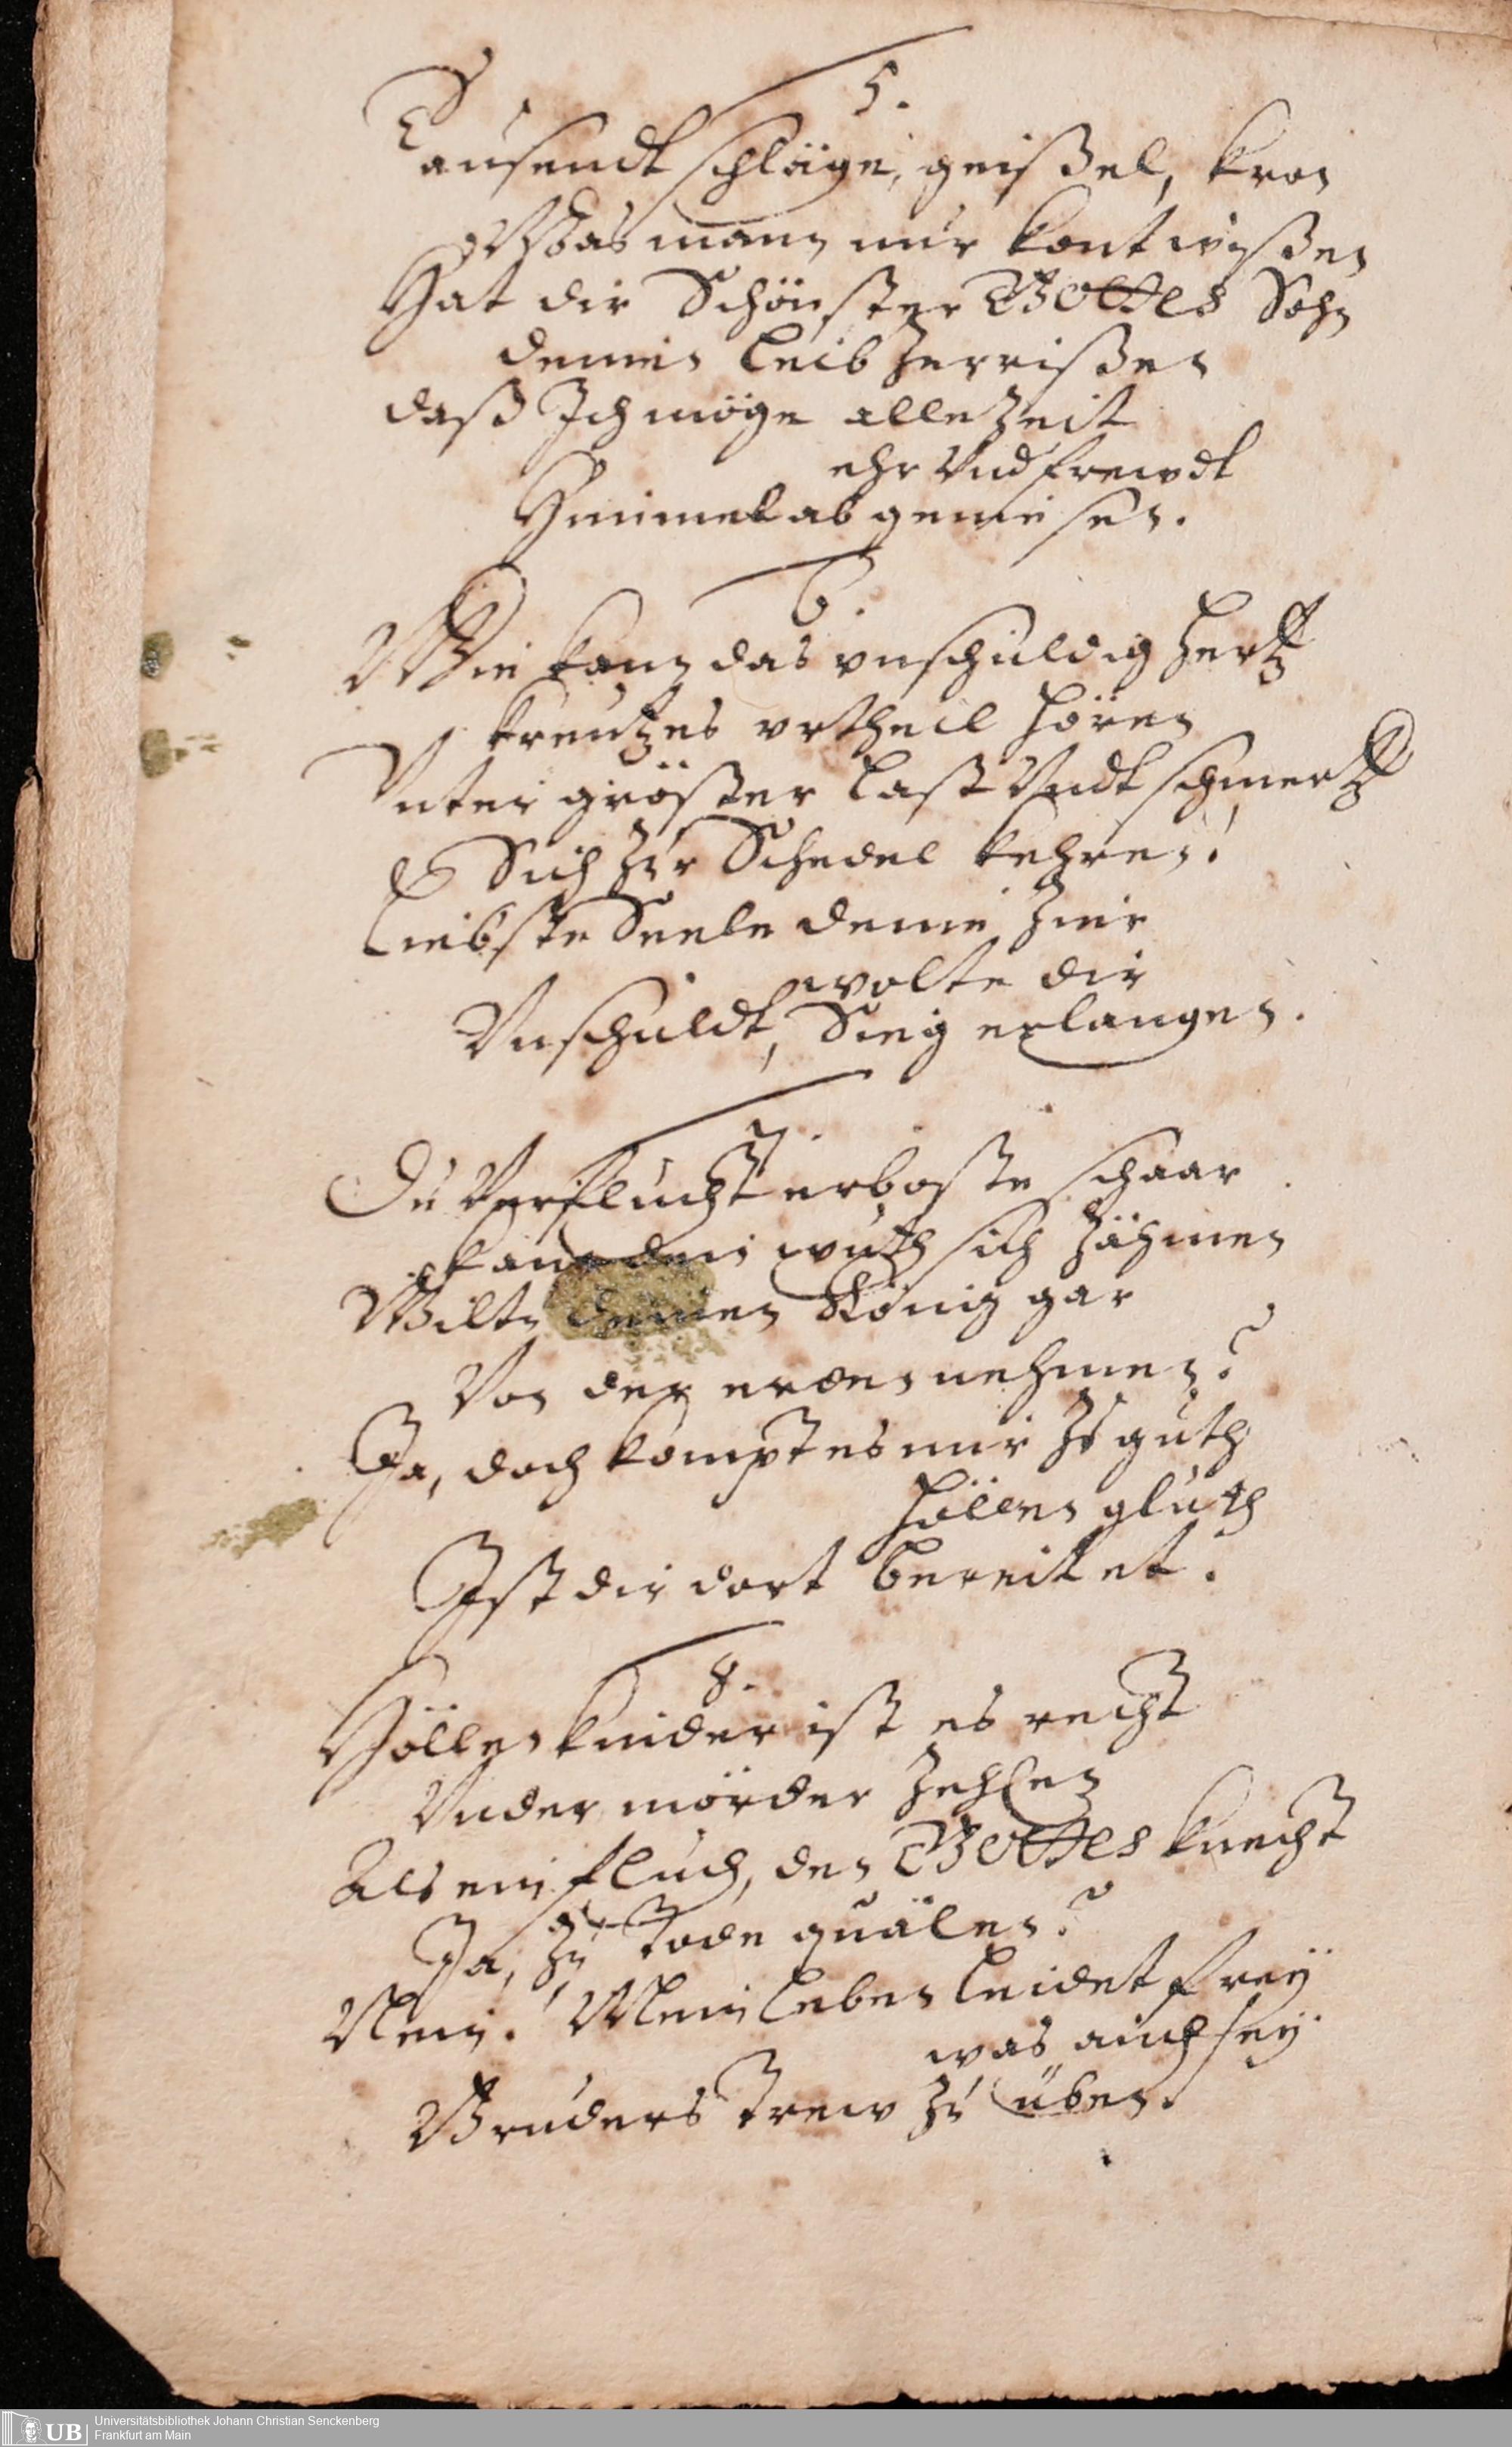 5.
Tausendt schläge, geißel, kron
Was mann nur kont wißen
Hat dir Schönster Gottes Sohn
deinen leib zerrißen
daß Ich möge alle Zeit
ehr Vnd frewdt
Himmelab genießen.
6.
Wie kann das vnschuldig Hertz
kreutzes vrtheil hören
Vnter gröster last Vndt schmertz
Sich zur Schedel kehren!
Liebste Seele deine Zier
wolte dir
Vnschuldt, Sieg erlangen.
7.
Du Verflucht erboste schaar
kan dein wuth sich zähmen
Wiltu deinen König gar
Von der erden nehmen?
Ja, doch kompt es mir zu guth
höllen gluth
Ist dir dort bereitet.
8.
Höllen kinder ist es recht
Vnder mörder zehlen
Als ein fluch, den Gottes knecht
Ja, zu Tode quälen?
Nein! Mein leben leidet freÿ
was auch seÿ
Bruders Trew zu üben.
UB
Universitätsbibliothek Johann Christian Senckenberg
Frankfurt am Main